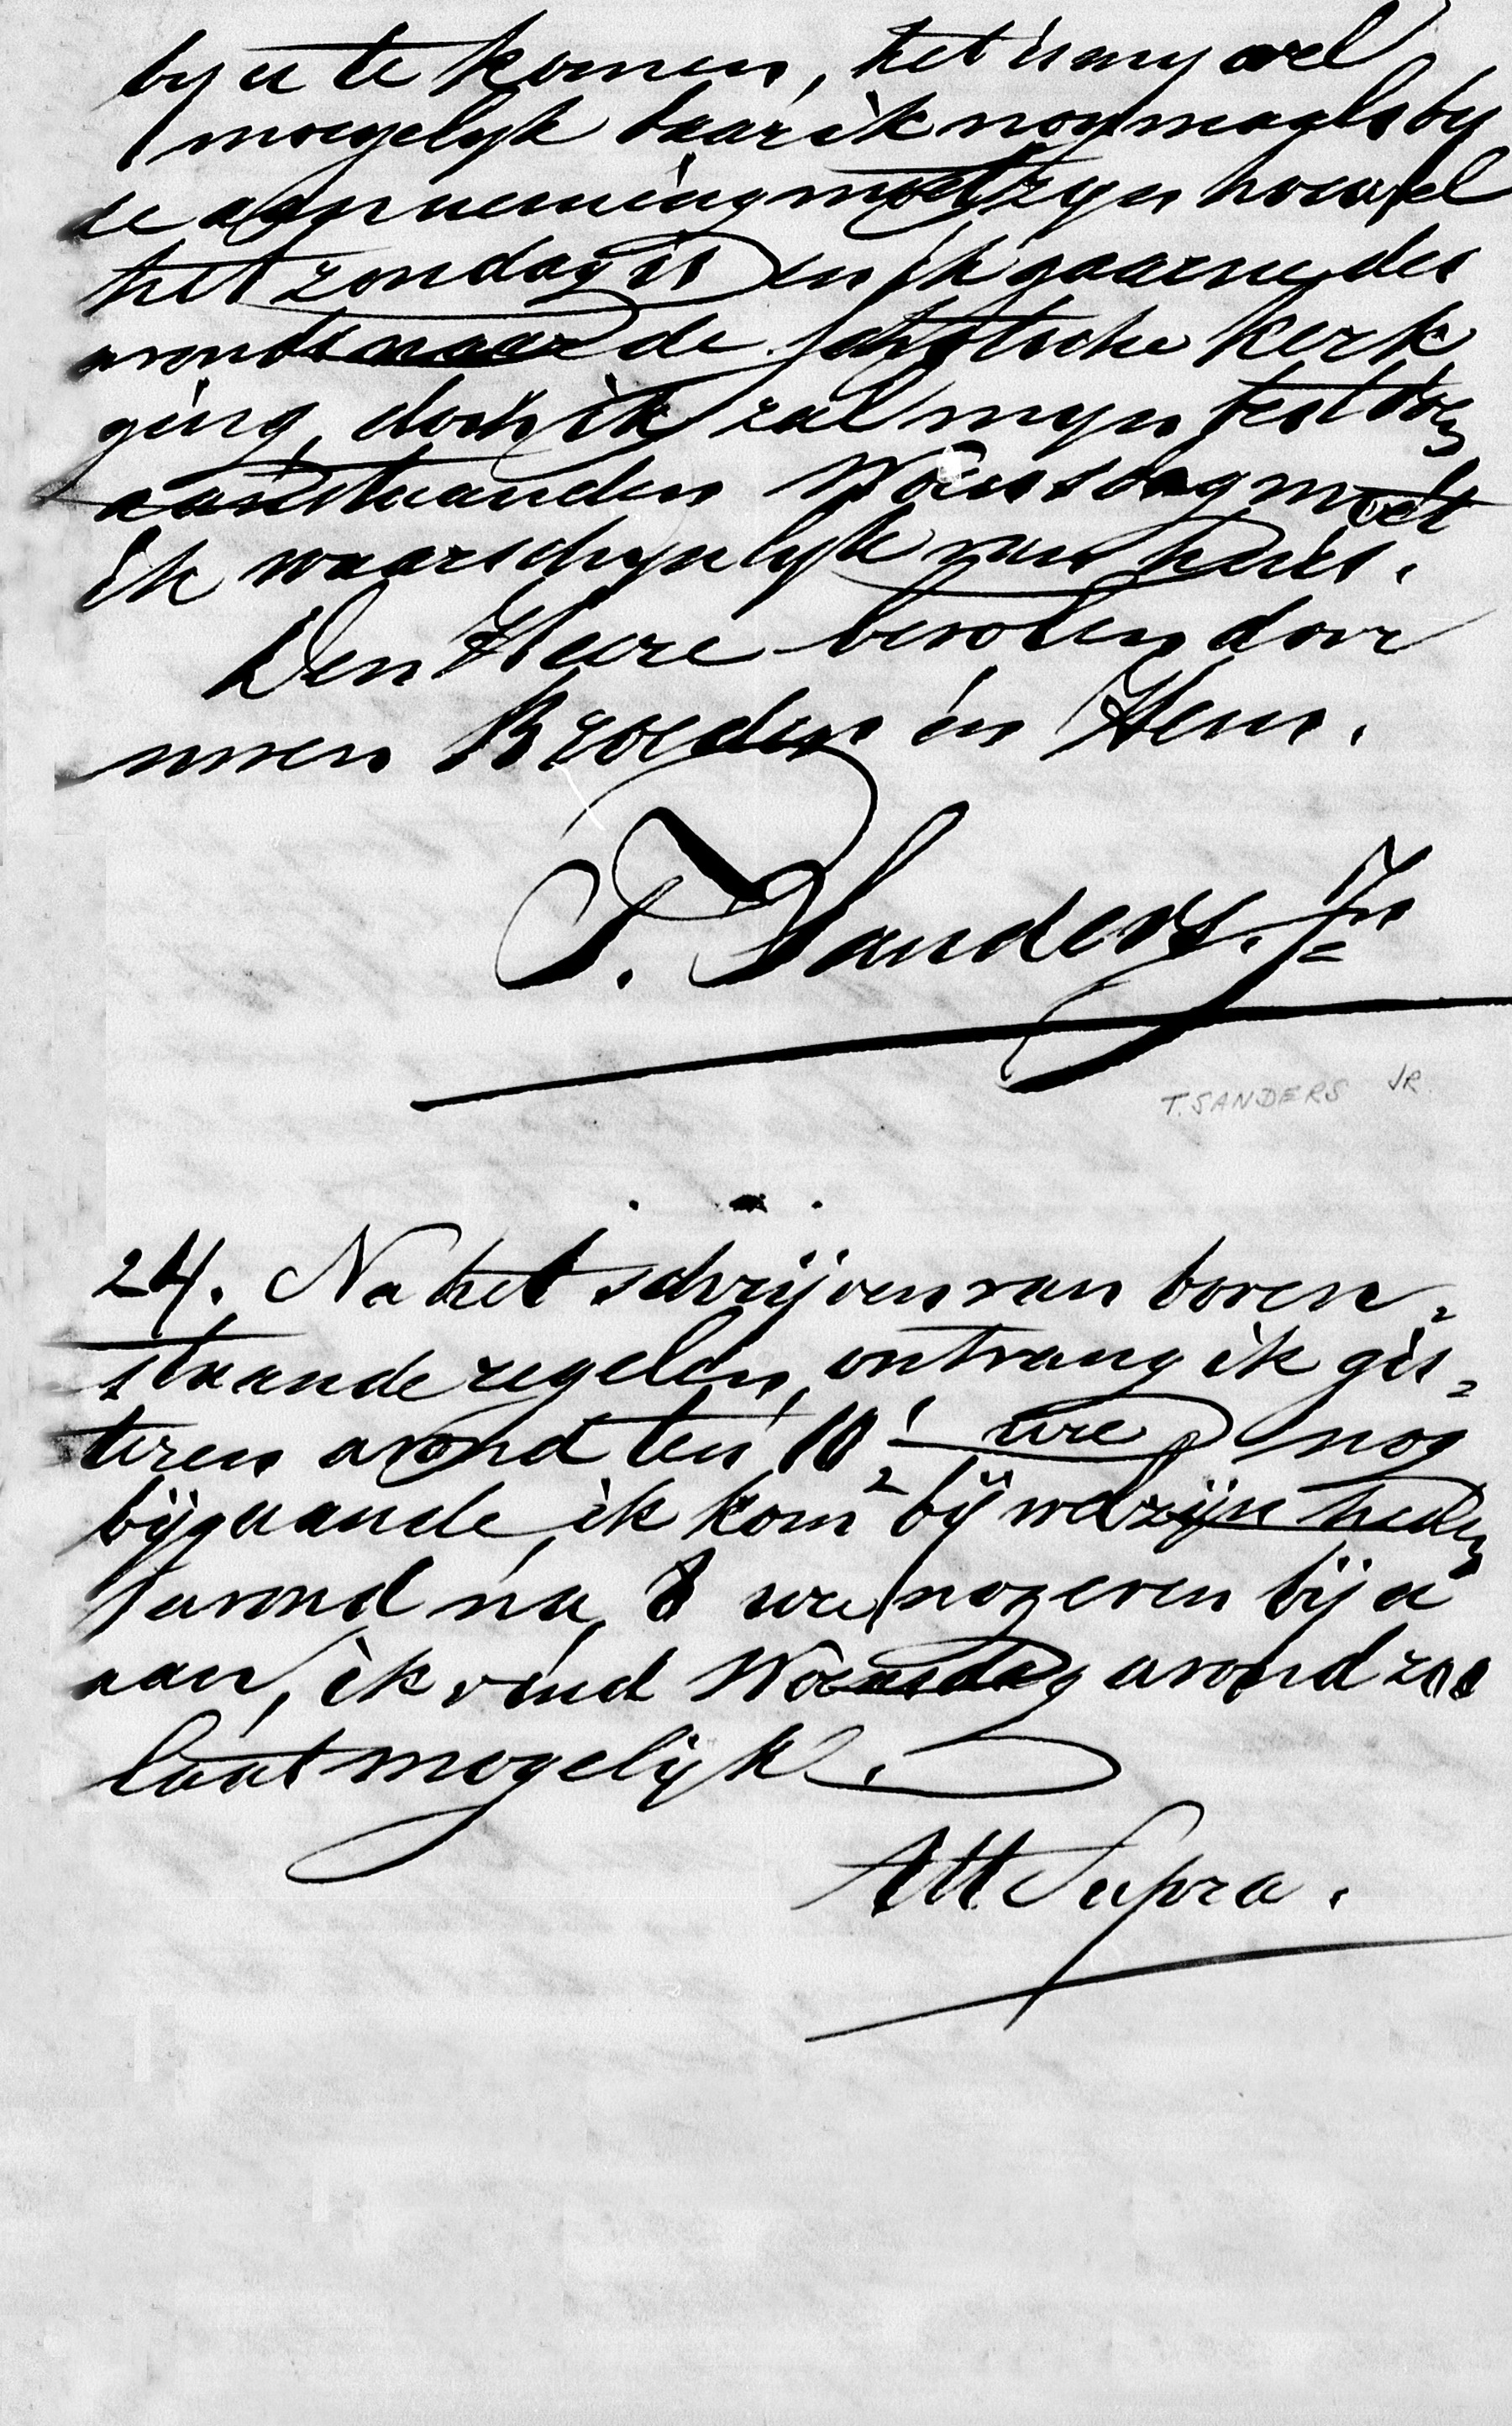 by u te komen, het is my wel
moegelyk daar ik nogmaals by
de aanneming moet zyn hoewel
het zondag is en ik gaarne des
avonds naar de schotsche Kerk
ging, doch ik zal myn best doen
aanstaanden Woensdag moet
ik waarschynlyk van huis.
Den Heere bevolen door
uwen Broeder in Hem.
T. Sanders. Jr
T. SANDERS JR.
24. Na het schrijven van boven-
staande regelen, ontvang ik gis-
teren avond ten 10 1/2 ure nog
bijgaande, ik kom bij welzijn heden
avond na 8 ure nog even bij u
aan, ik vind Woensdag avond zoo
laat mogelijk.
Utt Supra.